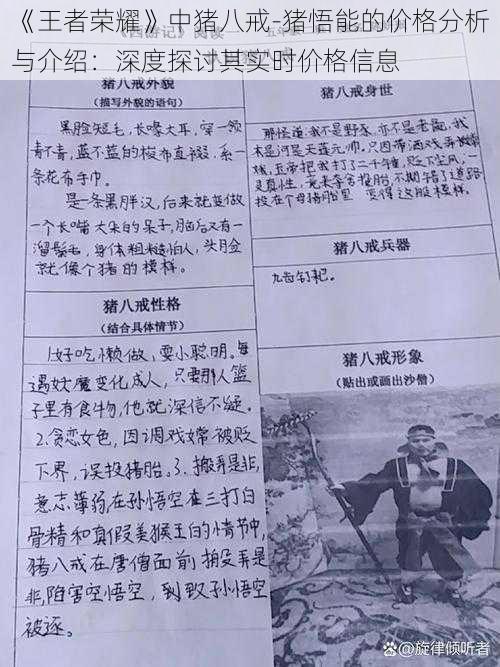 《王者荣耀》中猪八戒-猪悟能的价格分析
与介绍：深度探讨其实时价格信息
猪八戒外貌
（描写外貌的语句）
黑脸短毛，长喙大耳，穿一领
青不青，蓝不蓝的梭布直裰，系一
条花布手巾。
是一条黑胖汉，后来就变做
一个长嘴大耳朵的呆子，脑后又有一
溜鬃毛，身体粗糙怕人，头脸
就像个猪的模样。
猪八戒性格
（结合具体情节）
1.好吃懒做，耍小聪明。每
遇妖魔变化成人，只要那人篮
子里有食物，他就深信不疑。
2.贪恋女色，因调戏嫦被贬
下界，误投猪胎。3.搬弄是非，
意志薄弱，在孙悟空在三打白
骨精和真假美猴王的情节中，
猪八戒在唐僧面前搬弄是
非，陷害空悟空，到致孙悟空
被逐。
猪八戒身世
那怪道：我不是野豕，亦不是老彘，我
本是河是天蓬元帅，只因带酒戏弄嫦
娥，玉帝把我打了二千锤，贬下尘凡，一
灵真性，竟来夺舍投胎，不期错了道路
投在个母猪胎里 变得这般模样。
猪八戒兵器
九齿钉耙。
猪八戒形象
（贴出或画出沙僧）
@旋律倾听者